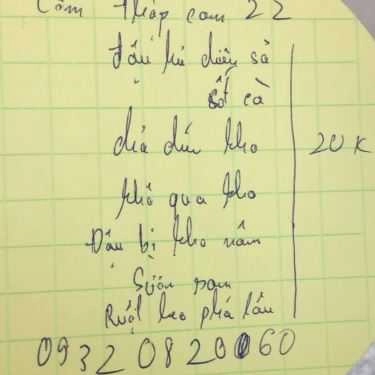 Cơm thập cẩm 22
đậu hủ chiên sả
sốt cà
chả đùm kho
20K
khổ qua kho
Đậu bị kho nấm
Sườn ram
Ruột heo phá lấu
0932 0820060